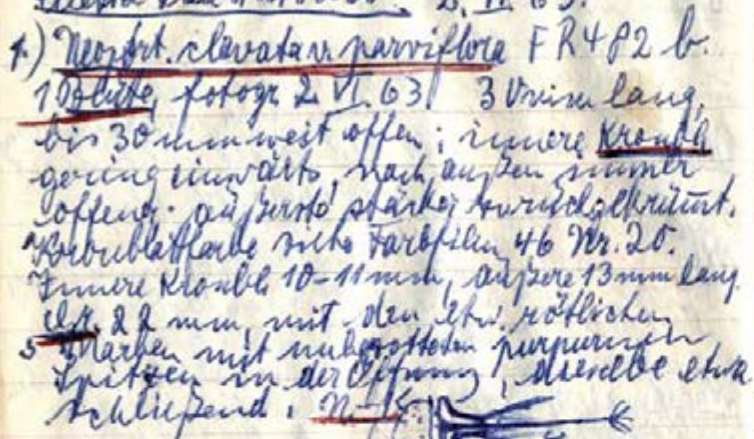 2. VI. 63.
1.) Neoport. clavata v. parviflora FR482 b.
1 Blüte, fotogr. 2. VI. 63 30 mm lang,
bis 30 mm weit offen; innere Kronbl
gering einwärts, nach außen immer
offener. äußerste stärker zurückgekrümt.
Kronblattfarbe siehe Farbfilm 46 Nr. 20.
Innere Kronbl 10-11 mm, äußere 13 mm lang
22 mm, mit den etw. rötlichen
Narben mit purpurnen
Spitzen in der Öffnung, dieselbe etwa
schließend.